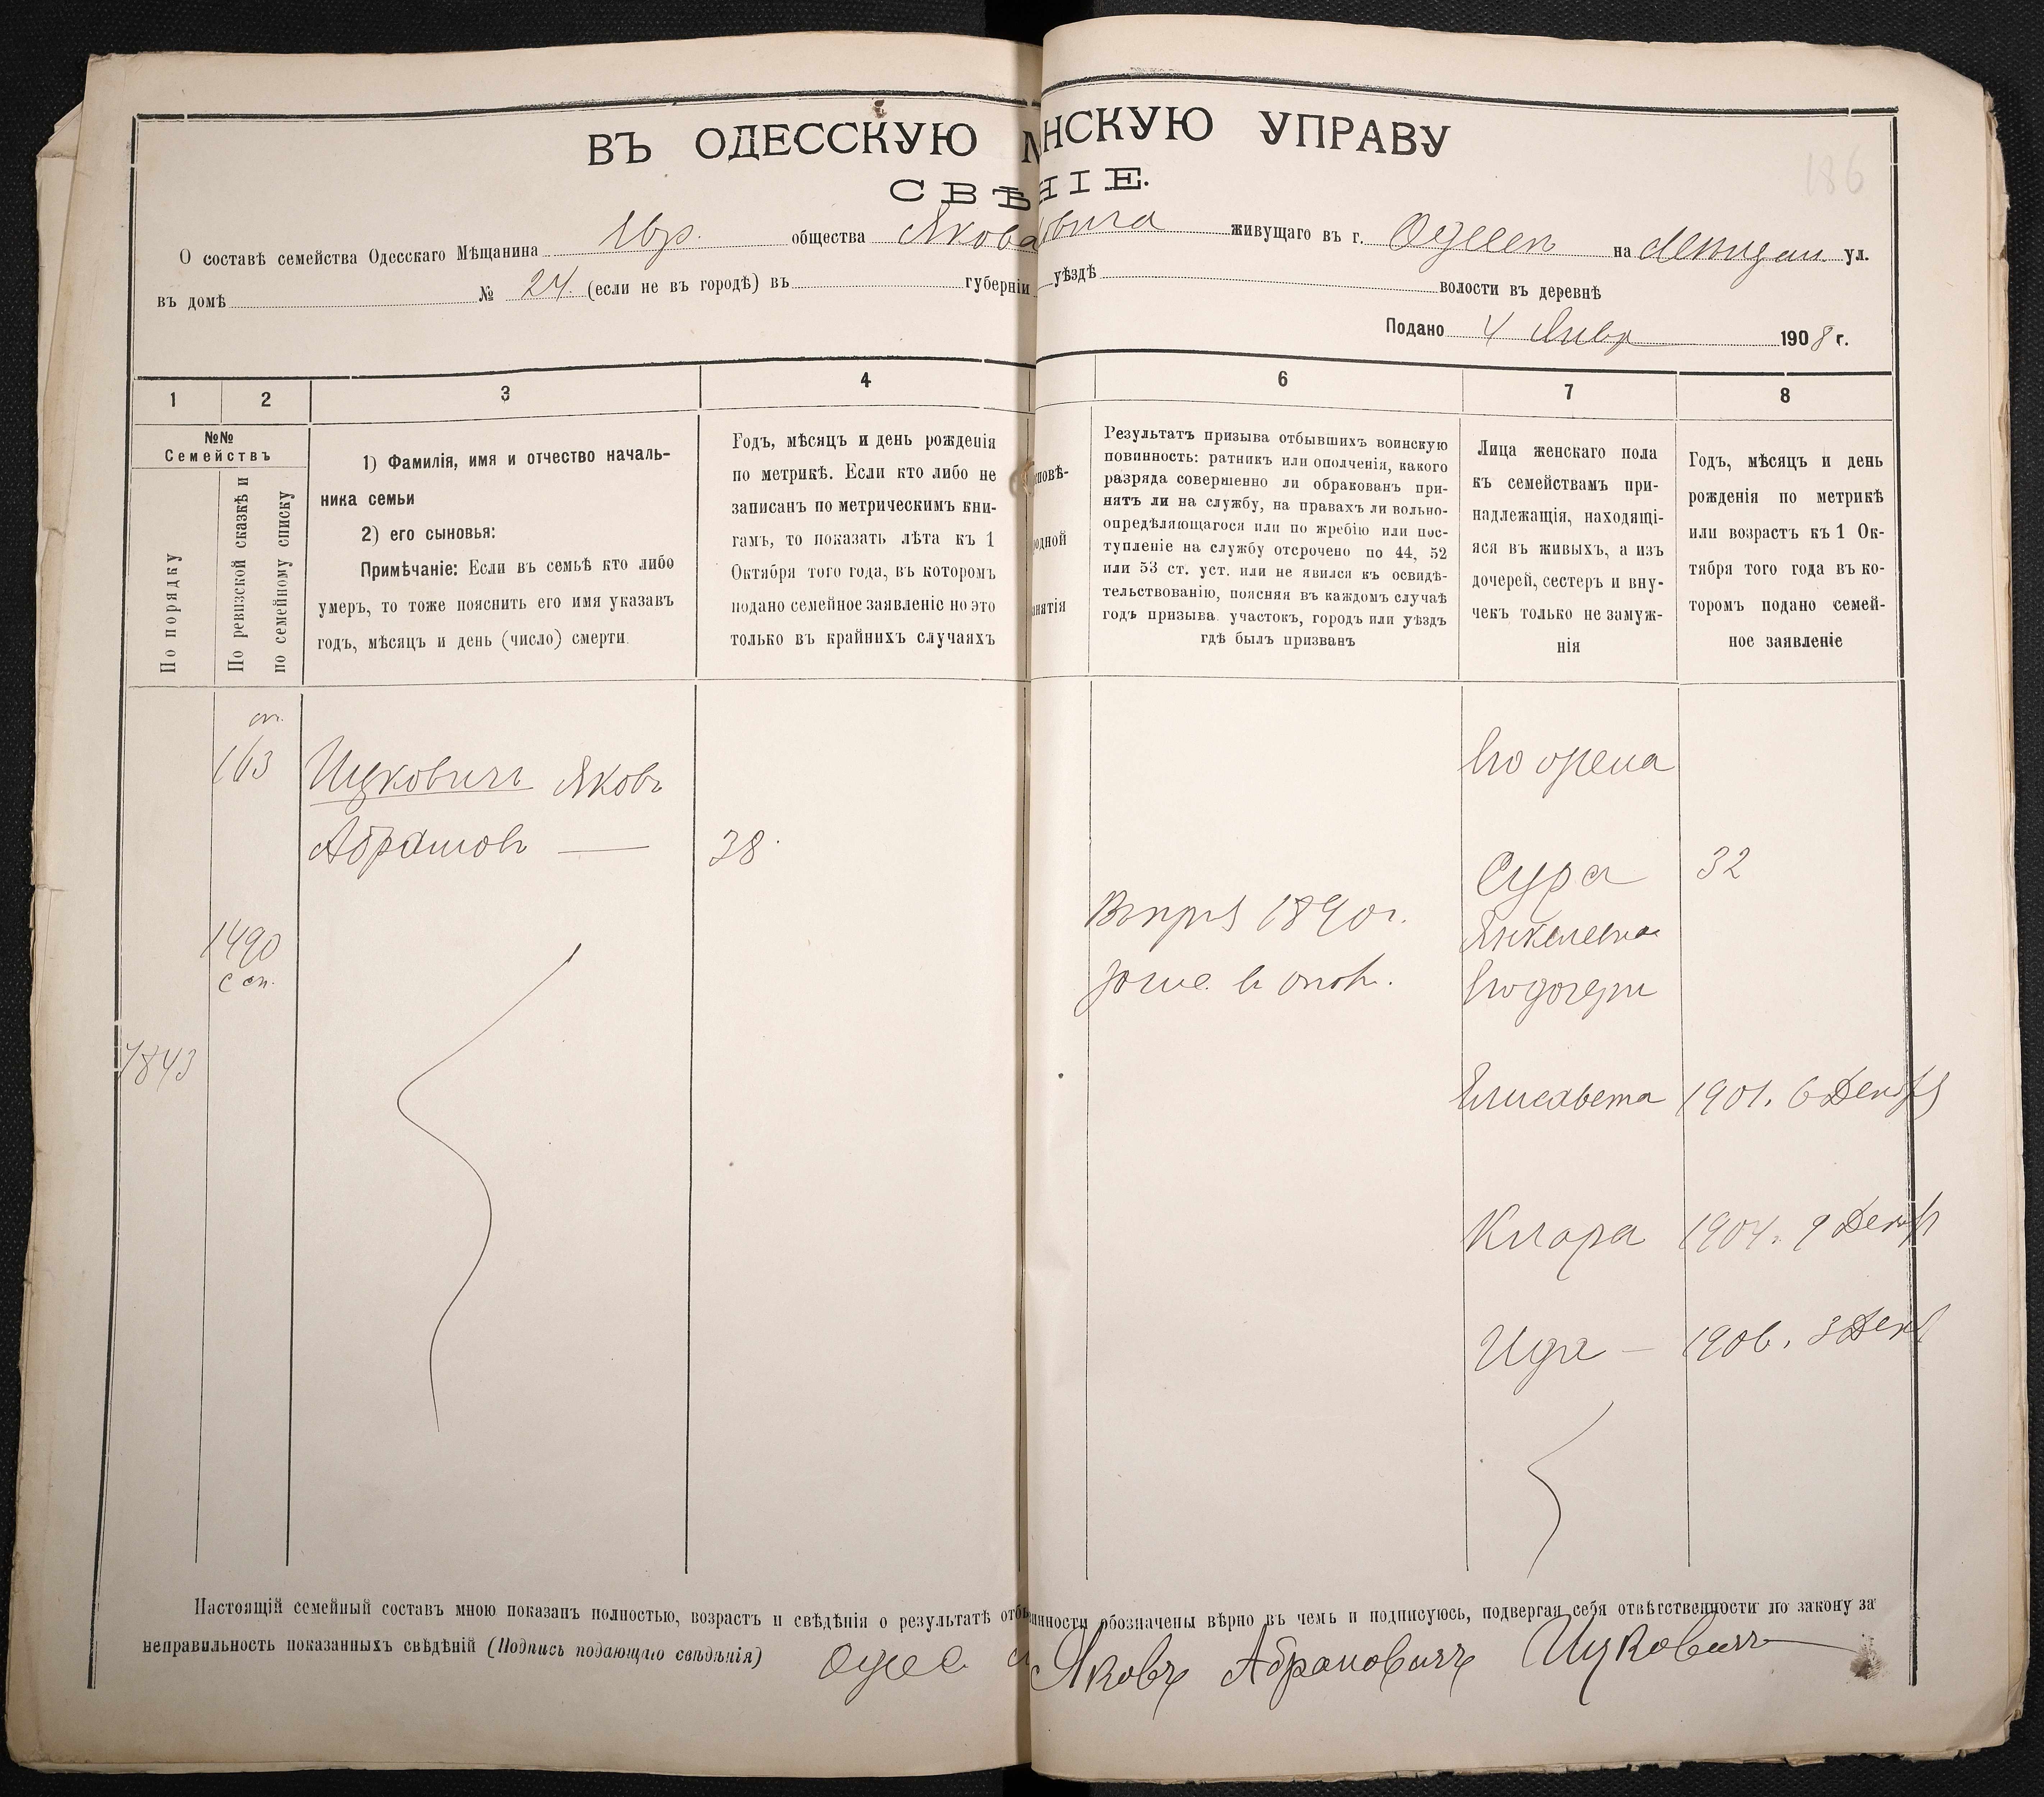 186
ВЪ ОДЕССКУЮ НСКУЮ УПРАВУ
СВѢ НІЕ.
О составѣ семейства Одесскаго Мѣщанина Евр. общества Якова живущаго въ г. Одессѣ на ул.
въ домѣ № 24. (если не въ городѣ) въ губерніи уѣздѣ волости въ деревнѣ
Подано 4 Янвр 1908 г.
1 2 3 4 6 7 8
№№
Семействъ
По порядку
По ревизской сказкѣ и
по семейному списку
1) Фамилія, имя и отчество началь-
ника семьи
2) его сыновья:
Примѣчаніе: Если въ семьѣ кто либо
умеръ, то тоже пояснить его имя указавъ
годъ, мѣсяцъ и день (число) смерти.
Годъ, мѣсяцъ и день рожденія
по метрикѣ. Если кто либо не
записанъ по метрическимъ кни-
гамъ, то показать лѣта къ 1
Октября того года, въ которомъ
подано семейное заявленіе но это
только въ крайнихъ случаяхъ
повѣ-
одной
нятія
Результатъ призыва отбывшихъ воинскую
повинность: ратникъ или ополченія, какого
разряда совершенно ли обракованъ при-
нятъ ли на службу, на правахъ ли вольно-
опредѣляющагося или по жребію или пос-
тупленіе на службу отсрочено по 44, 52
или 53 ст. уст. или не явился къ освидѣ-
тельствованію, поясняя въ каждомъ случаѣ
годъ призыва участокъ, городъ или уѣздъ
гдѣ былъ призванъ
Лица женскаго пола
къ семействамъ при-
надлежащія, находящі-
яся въ живыхъ, а изъ
дочерей, сестеръ и вну-
чекъ только не замуж-
нія
Годъ, мѣсяцъ и день
рожденія по метрикѣ
или возрастъ къ 1 Ок-
тября того года въ ко-
торомъ подано семей-
ное заявленіе
163 Ицковичъ Яковъ
Абрамовъ 38
1490
с сп.
1843
1890 г.
в опол.
Его жена
Сура 32
Янкелевна
Его дочери
Елисавета 1901. 6 Декбря
Клара 1904. 9 Декбр
Ида 1906. 3 Декб
Настоящій семейный составъ мною показанъ полностью, возрастъ и свѣдѣнія о результатѣ отбы инности обозначены вѣрно въ чемъ и подписуюсь, подвергая себя отвѣтственности по закону за
неправильность показанныхъ свѣдѣній (Подпись подающаго свѣдѣнія) Одес Яковъ Абрамовичъ Ицковичъ